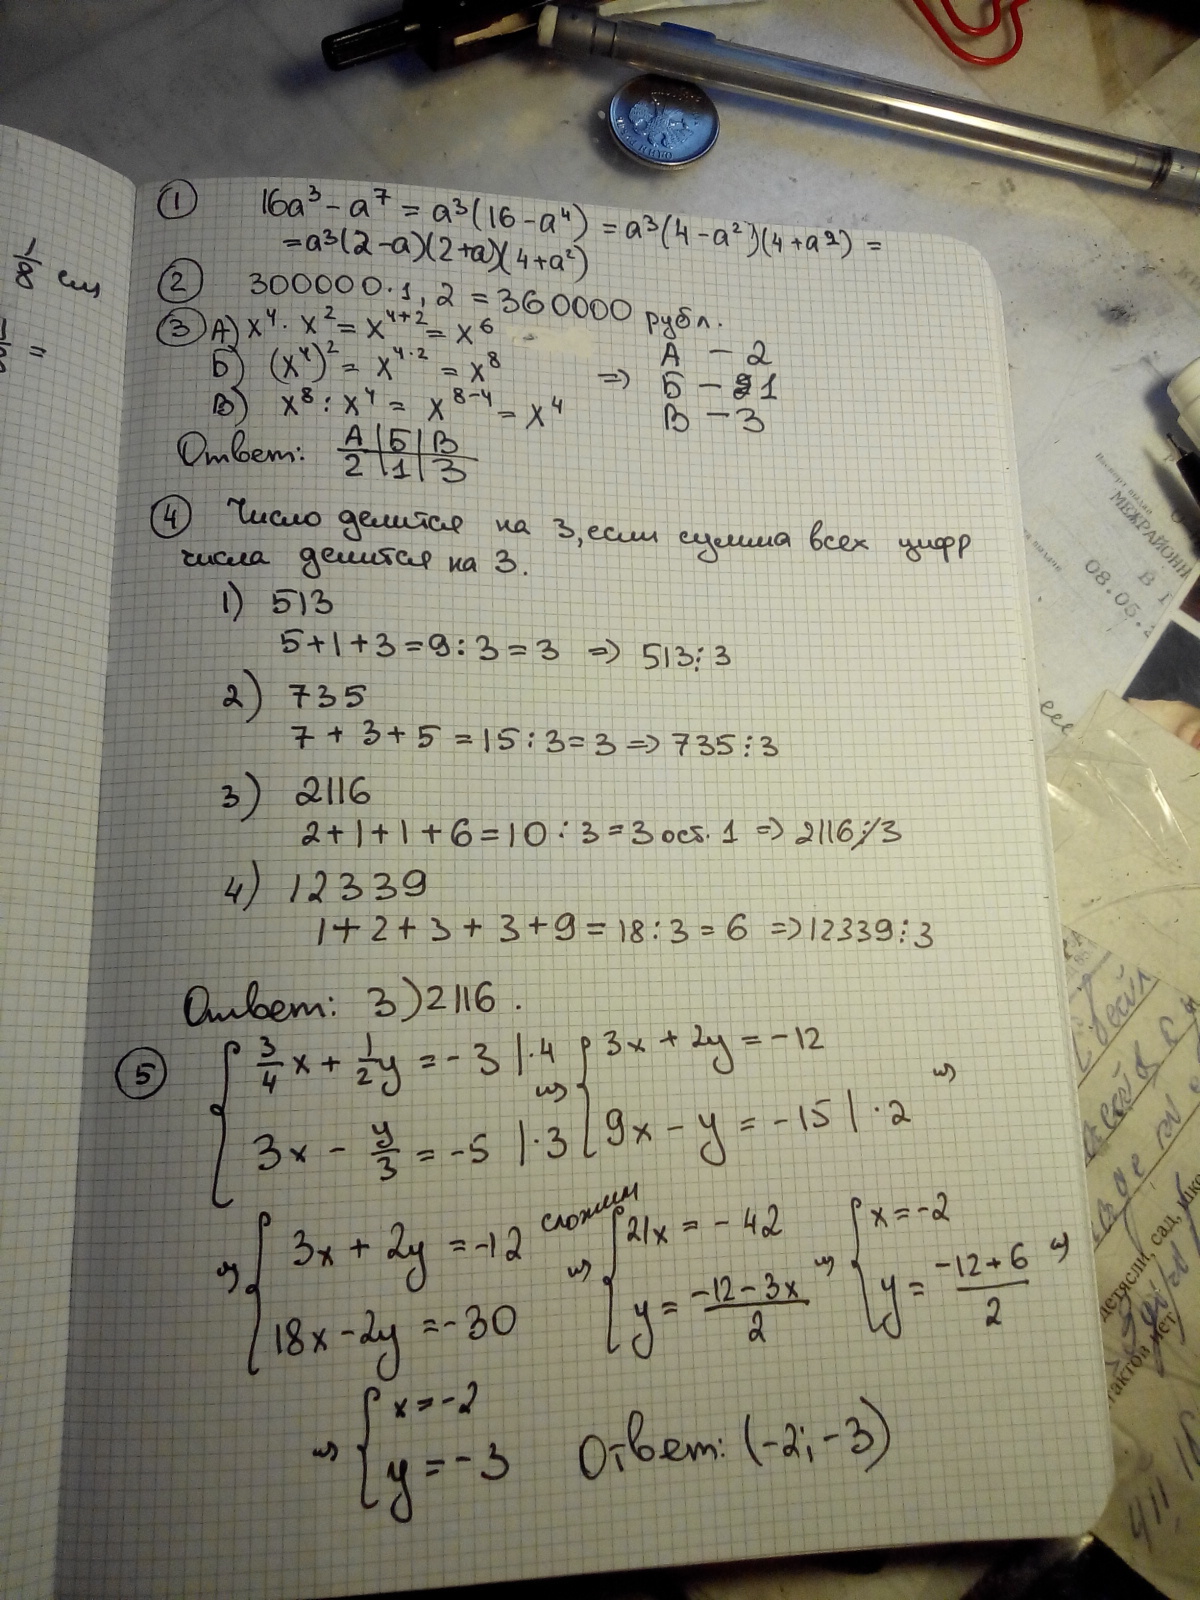 1/8 см
=
① 16a³ - a⁷ = a³(16 - a⁴) = a³(4 - a²)(4 + a²) =
= a³(2 - a)(2 + a)(4 + a²)
② 300000 · 1,2 = 360000 рубл.
③ А) x⁴ · x² = x⁴⁺² = x⁶
Б) (x⁴)² = x⁴·² = x⁸
В) x⁸ : x⁴ = x⁸⁻⁴ = x⁴
=> А - 2
Б - 1
В - 3
Ответ: А | Б | В
2 | 1 | 3
④ Число делится на 3, если сумма всех цифр
числа делится на 3.
1) 513
5 + 1 + 3 = 9 : 3 = 3 => 513 ⋮ 3
2) 735
7 + 3 + 5 = 15 : 3 = 3 => 735 ⋮ 3
3) 2116
2 + 1 + 1 + 6 = 10 : 3 = 3 ост. 1 => 2116 ⋮̸ 3
4) 12339
1 + 2 + 3 + 3 + 9 = 18 : 3 = 6 => 12339 ⋮ 3
Ответ: 3) 2116.
⑤ { 3/4 x + 1/2 y = -3 | · 4 => { 3x + 2y = -12
3x - y/3 = -5 | · 3 9x - y = -15 | · 2 =>
=> { 3x + 2y = -12 сложим => { 21x = -42 => { x = -2
18x - 2y = -30 y = (-12 - 3x)/2 y = (-12 + 6)/2 =>
=> { x = -2
y = -3 Ответ: (-2; -3)
МЕЖРАЙОНН
08.05.
детясли, сад,